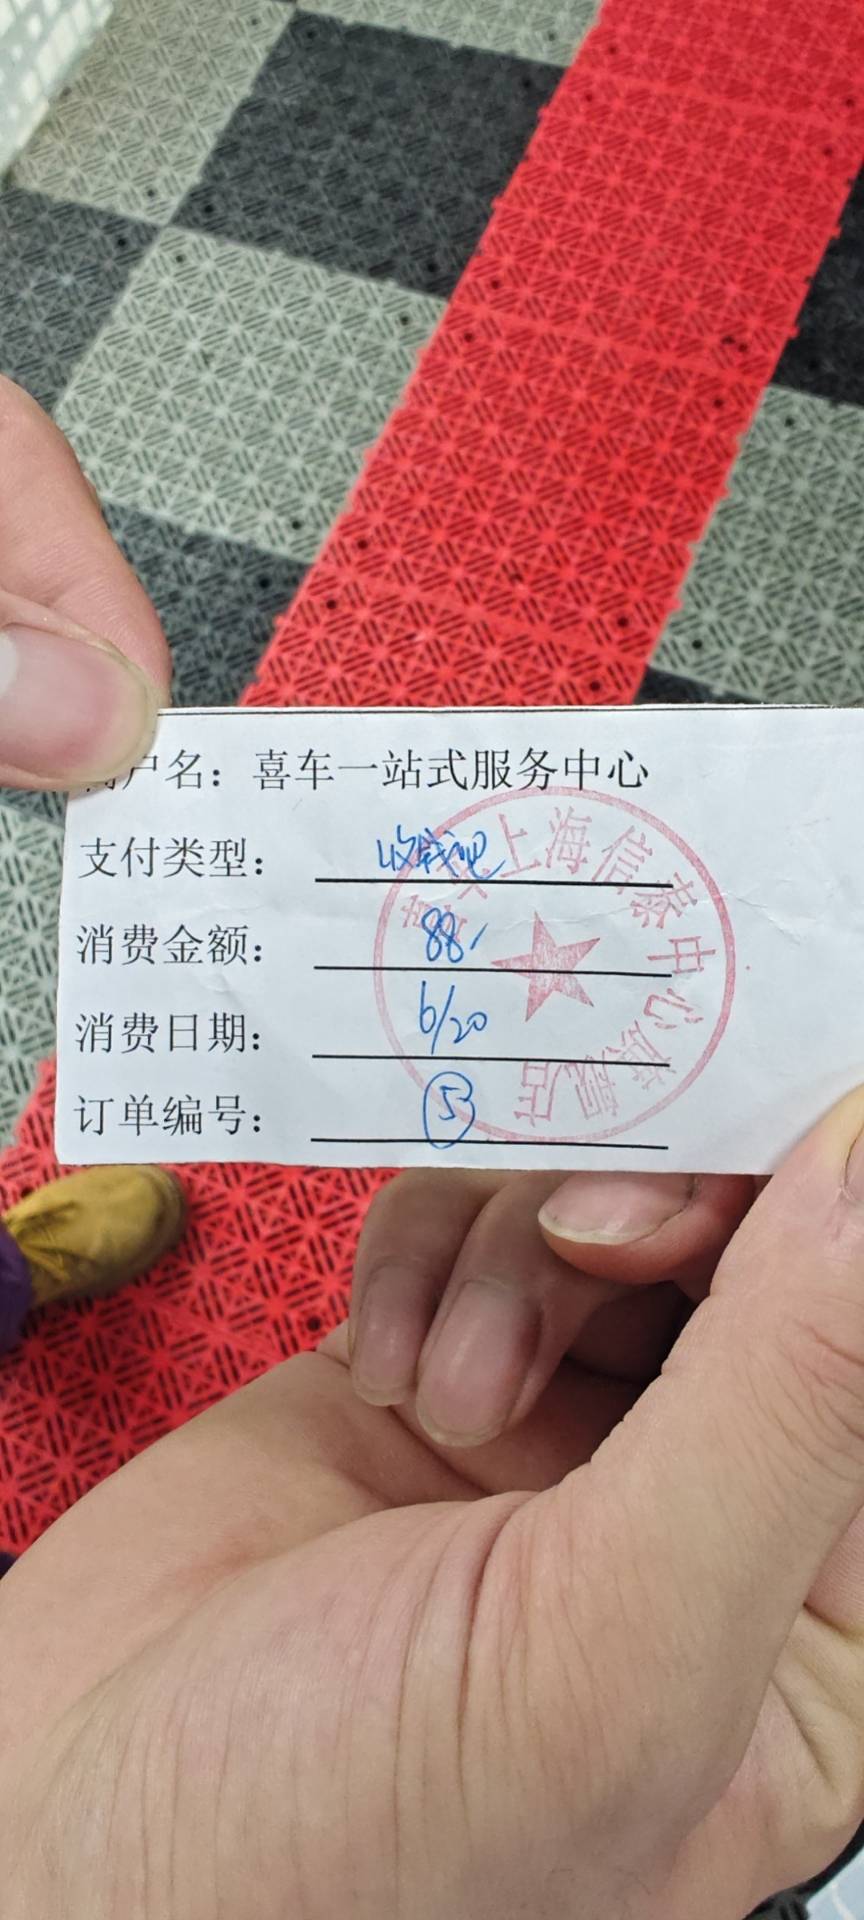 户名：喜车一站式服务中心
支付类型：收钱吧
消费金额：88/
消费日期：6/20
订单编号：⑤
喜车上海信泰中心旗舰店